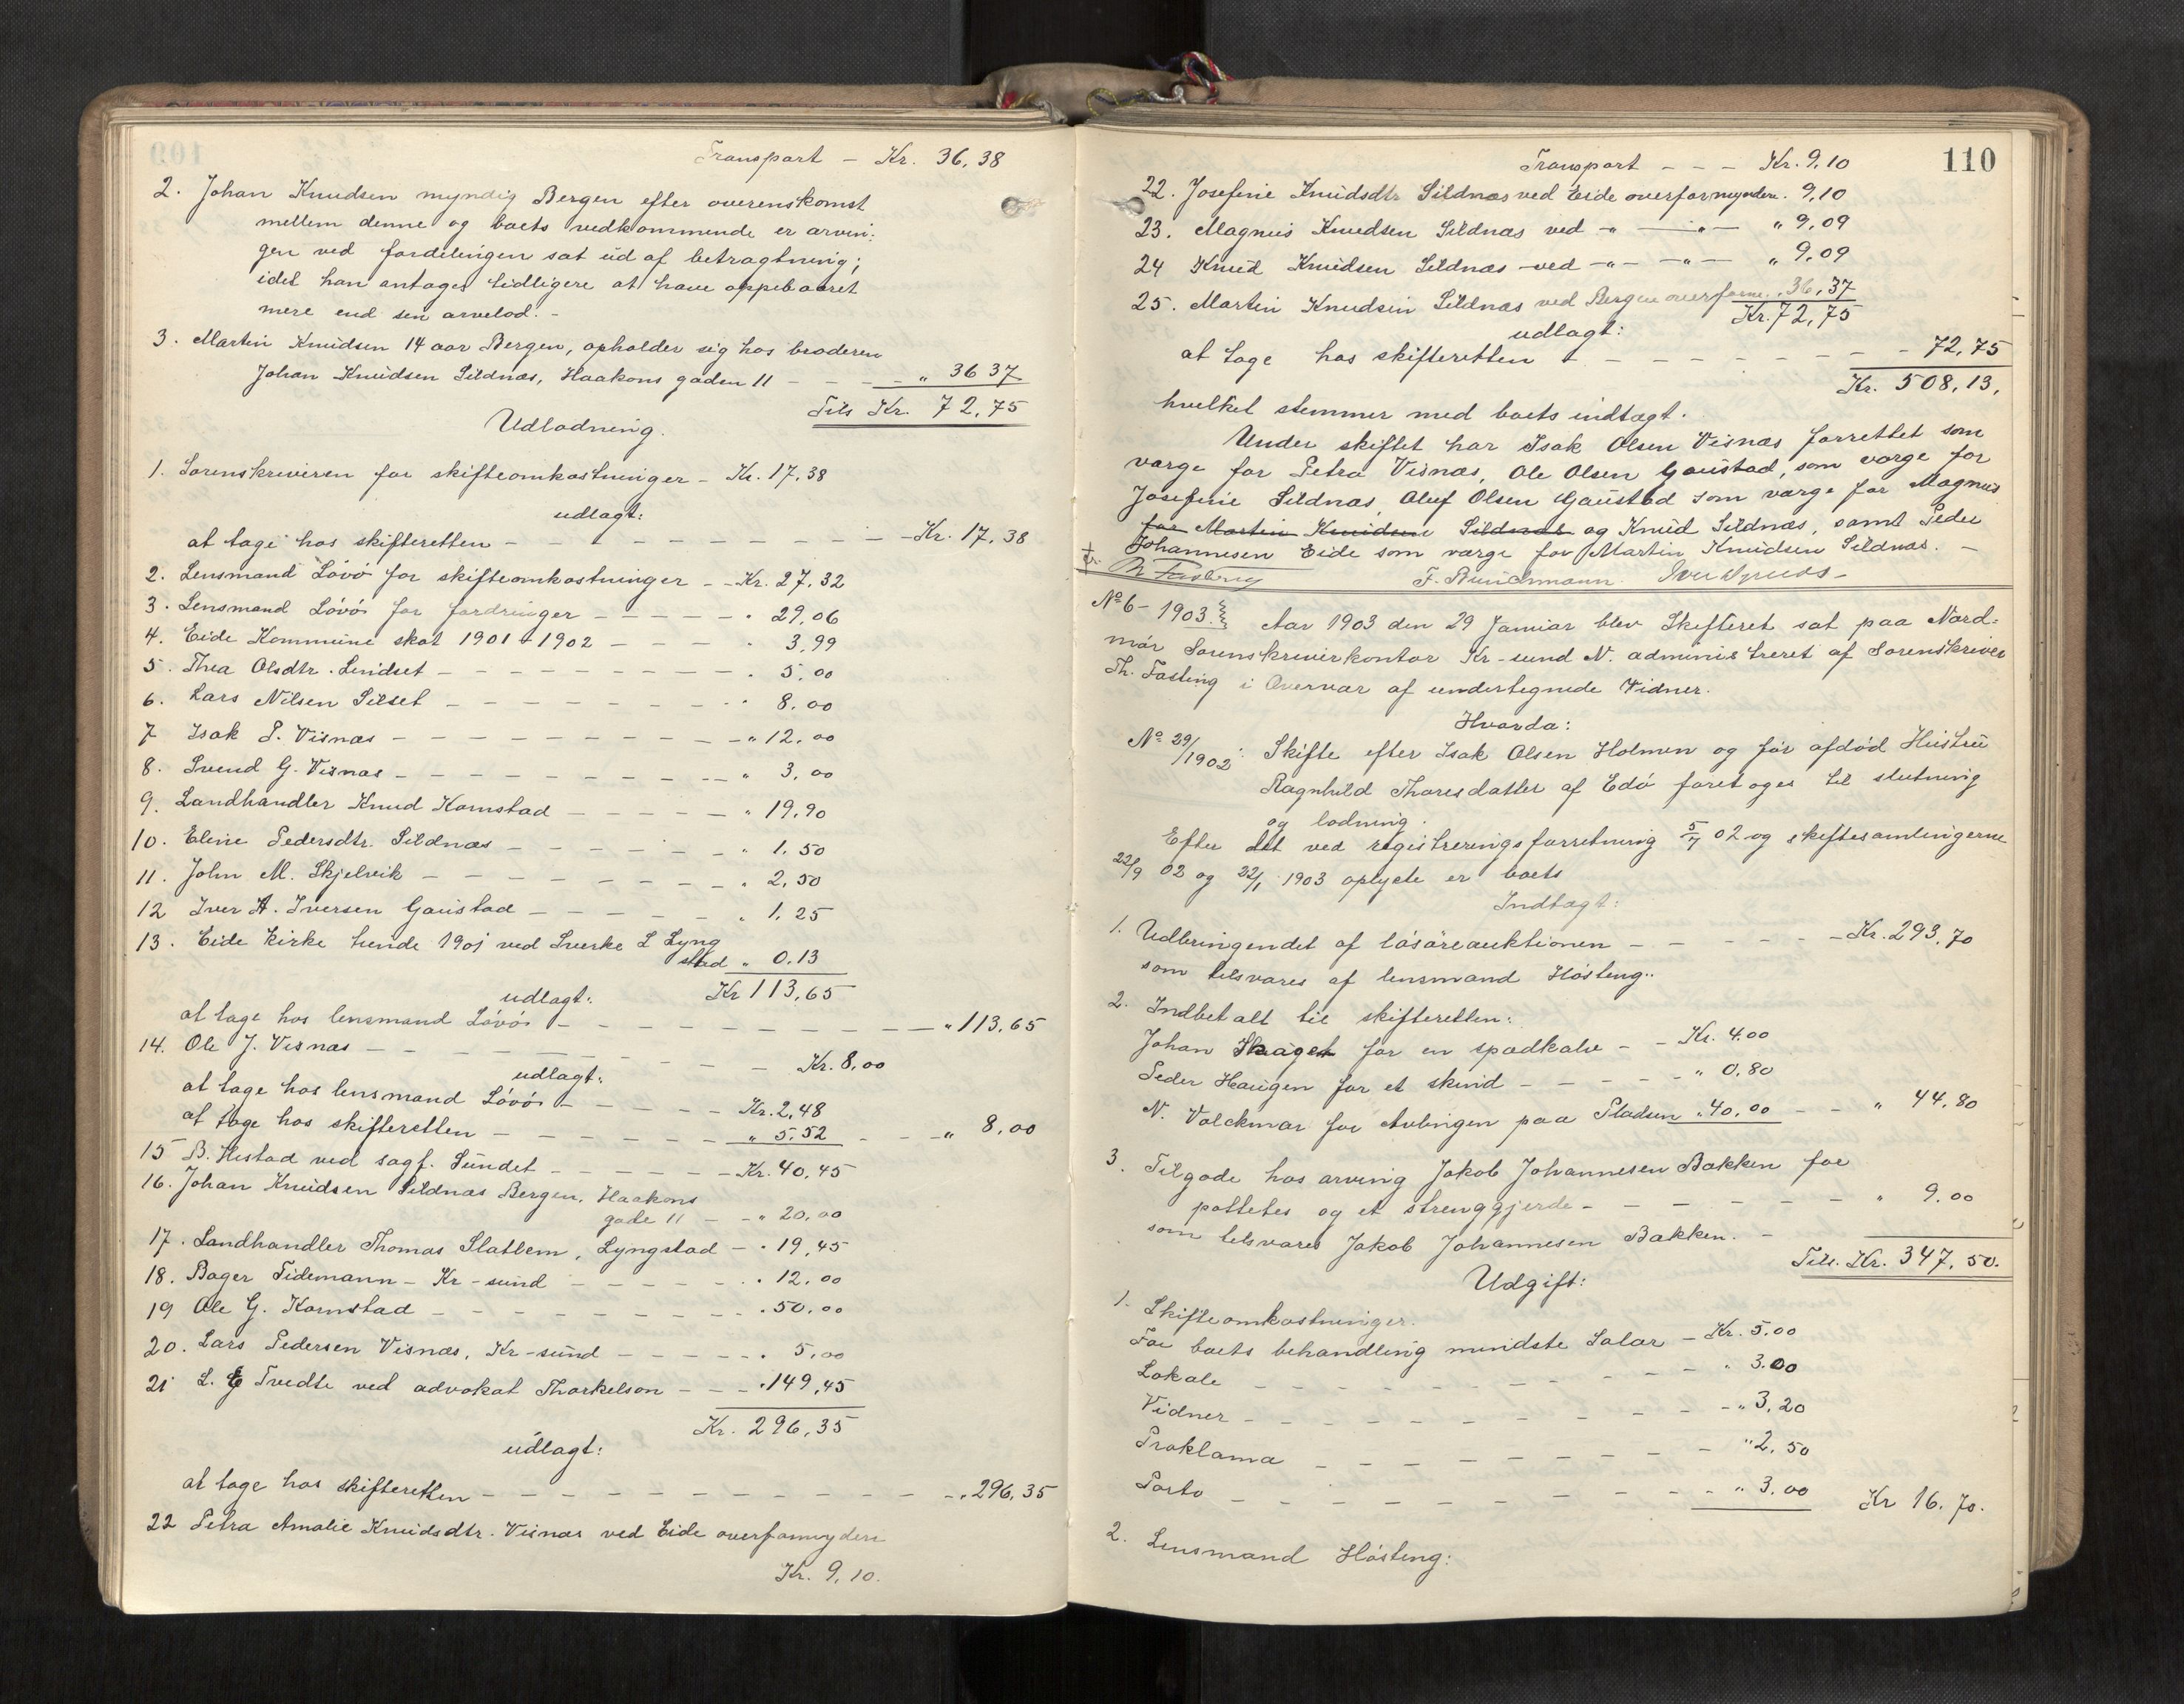 Transport – Kr. 36,38
2. Johan Knudsen myndig Bergen efter overenskomst
mellem denne og boets vedkommende er arvin-
gen ved fordelingen sat ud af betragtning;
idet han antages tidligere at have oppebaaret
mere end sen arvelod. –
3. Martin Knudsen 14 aar Bergen, opholder sig hos broderen
Johan Knudsen Sildnæs, Haakons gaden 11 – – – „ 36 37
Tils Kr. 72,75
Udlodning.
1. Sorenskriveren for skifteomkostninger – Kr. 17,38
udlagt:
at tage hos skifteretten – – – – – – – – – – Kr. 17,38
2. Lensmand Lövö for skifteomkostninger – – Kr. 27,32
3. Lensmand Lövö for fordringer – – – – – „ 29,06
4. Eide Kommune skat 1901 + 1902 – – – „ 3,99
5. Thea Olsdtr. Lindset – – – – – – – – „ 5,00
6. Lars Nilsen Silset – – – – – – – – „ 8,00
7 Isak P. Visnæs – – – – – – – – – „ 12,00
8. Svend G. Visnæs – – – – – – – – – „ 3,00
9. Landhandler Knud Kornstad – – – – – „ 19,90
10. Eline Pedersdtr. Sildnæs – – – – – – – „ 1,50
11. John M. Skjelvik – – – – – – – – – „ 2,50
12 Iver A. Iversen Gaustad – – – – – – „ 1,25
13. Eide kirke tiende 1901 ved Sverke L Lyng
stad „ 0.13
Kr 113,65
udlagt:
at tage hos lensmand Lövö – – – – – – – – – – „ 113,65
14. Ole J. Visnæs – – – – – – – – Kr. 8,00
udlagt:
at tage hos lensmand Lövö – – – – – Kr. 2,48
at tage hos skifteretten – – – – – – „ 5,52 – – – „ 8,00
15 B. Hestad ved sagf. Sundet – – – – – – Kr. 40,45
16. Johan Knudsen Sildnæs Bergen, Haakons
gade 11 – – „ 20,00
17. Landhandler Thomas Slatlem, Lyngstad – „ 19,45
18. Bager Tidemann – Kr-sund – – – – – – „ 12,00
19 Ole G. Kornstad – – – – – – – – – „ 50,00
20. Lars Pedersen Visnæs, Kr-sund – – – – – „ 5,00
21 L. E Tvedte ved advokat Thorkelson – – – „ 149,45
Kr. 296,35
udlagt:
at tage hos skifteretten – – – – – – – – – – – – „ 296,35
22 Petra Amalie Knudsdtr. Visnæs ved Eide overformynderi
Kr. 9,10.
110
Transport – – – Kr. 9,10
22. Josefine Knudsdtr Sildnæs ved Eide overformynderi. 9,10
23. Magnus Knudsen Sildnæs ved –„– –„– „ 9,09
24 Knud Knudsen Sildnæs – ved –„– –„– „ 9,09
25. Martin Knudsen Sildnæs ved Bergen overform. „ 36,37
Kr. 72,75
udlagt:
at tage hos skifteretten – – – – – – – – 72,75
Kr. 508,13,
hvilket stemmer med boets indtægt.
Under skiftet har Isak Olsen Visnæs forrettet som
værge for Petra Visnæs, Ole Olsen Gaustad, som værge for
Josefine Sildnæs, Oluf Olsen Gaustad som værge for Magnus
for Martin Knudsen Sildnæs og Knud Sildnæs, samt Peder
Johannesen Eide som værge for Martin Knudsen Sildnæs. –
Th Fasting F. Brinchmann.
No 6 – 1903. Aar 1903 den 29 Januar blev Skifteret sat paa Nord-
mör Sorenskriverkontor Kr-sund N. administreret af Sorenskriver
Th. Fasting i Overvær af undertegnede Vidner.
Hvorda:
No 29/1902: Skifte efter Isak Olsen Holmen og för afdöd Hustru
Ragnhild Thoresdatter af Edö foretoges til slutning
og lodning.
Efter det ved registreringsforretning 5/7 02 og skiftesamlingerne
22/9 02 og 22/1 1903 oplyste er boets
Indtægt:
1. Udbringendet af lösöreauktionen – – – – – – Kr. 293,70
som tilsvares af lensmand Hösteng..
2. Indbetalt til skifteretten:
Johan Skaget for en spædkalv – – Kr. 4.00
Peder Haugen for et skind – – – – – „ 0,80
N. Volckmar for Avlingen paa Pladsen „ 40,00 – – „ 44,80
3. Tilgode hos arving Jakob Johannesen Bakken for
pottetes og et strenggjerde – – – – – – „ 9.00
som tilsvares Jakob Johannesen Bakken. –
Tils. Kr. 347,50.
Udgift:
1. Skifteomkostninger.
For boets behandling mindste Salær – Kr. 5,00
Lokale – – – – – – – – – – „ 3.00
Vidner – – – – – – – – – – „ 3,20
Proklama – – – – – – – – – „ 2,50
Porto – – – – – – – – – – „ 3,00 Kr 16.70.
2. Lensmand Hösteng: